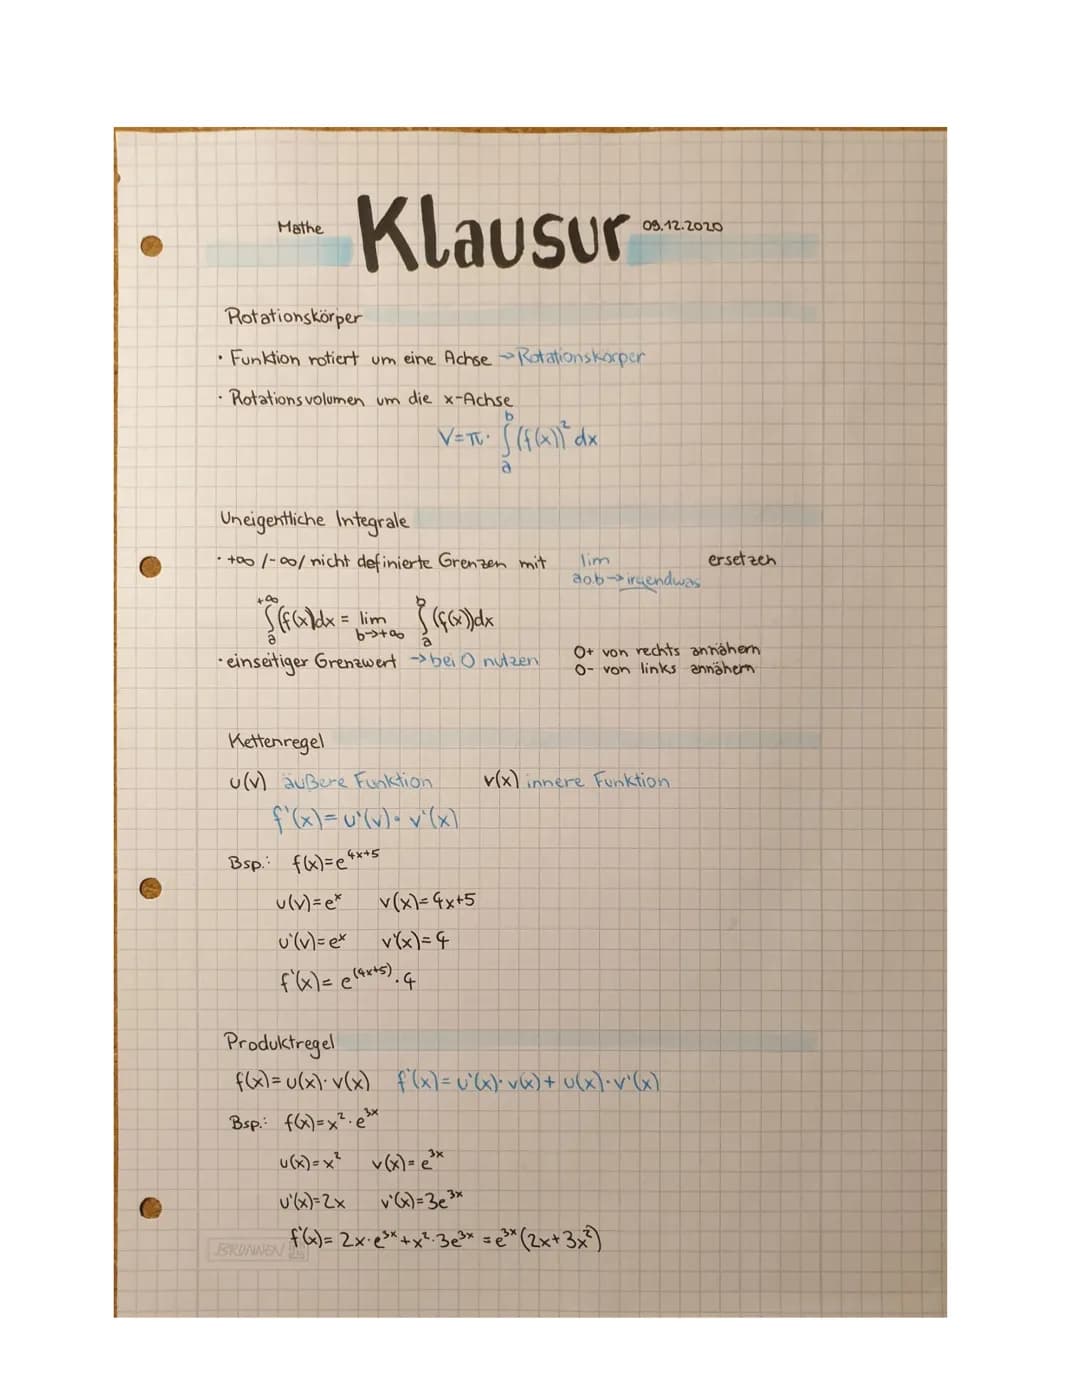 Mathe Klausur 09.12.2020
Rotationskörper
• Funktion rotiert um eine Achse → Rotationskörper
• Rotationsvolumen um die x-Achse
V=π· ∫ₐᵇ (f(x))² dx
Uneigentliche Integrale
• +∞ /-∞/ nicht definierte Grenzen mit lim ersetzen
a o.b → irgendwas
∫ₐ⁺∞ (f(x)dx = lim b→+∞ ∫ₐᵇ (f(x))dx
• einseitiger Grenzwert → bei 0 nutzen
0+ von rechts annähern
0- von links annähern
Kettenregel
u(v) äußere Funktion v(x) innere Funktion
f'(x)= u'(v)· v'(x)
Bsp.: f(x)=e^4x+5
u(v)=eˣ v(x)=4x+5
u'(v)=eˣ v'(x)=4
f'(x)= e^(4x+5) · 4
Produktregel
f(x)=u(x)· v(x) f'(x)=u'(x)· v(x)+ u(x)· v'(x)
Bsp.: f(x)=x² · e³ˣ
u(x)=x² v(x)= e³ˣ
u'(x)=2x v'(x)=3e³ˣ
f'(x)= 2x·e³ˣ+x²·3e³ˣ =e³ˣ(2x+3x²)
BRUNNEN